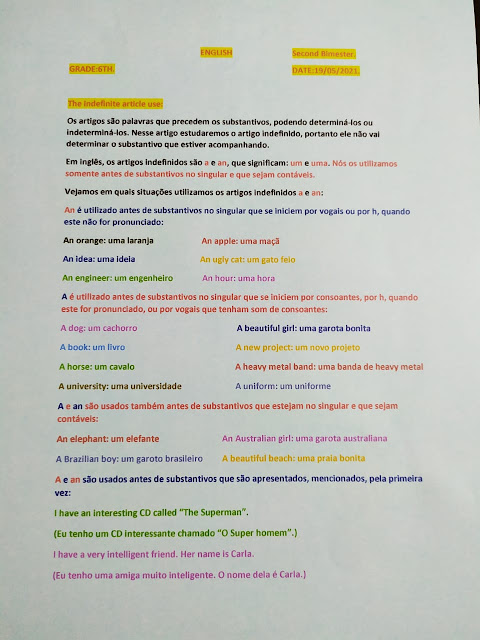 ENGLISH Second Bimester.
GRADE:6TH. DATE:19/05/2021.
The indefinite article use:
Os artigos são palavras que precedem os substantivos, podendo determiná-los ou
indeterminá-los. Nesse artigo estudaremos o artigo indefinido, portanto ele não vai
determinar o substantivo que estiver acompanhando.
Em inglês, os artigos indefinidos são a e an, que significam: um e uma. Nós os utilizamos
somente antes de substantivos no singular e que sejam contáveis.
Vejamos em quais situações utilizamos os artigos indefinidos a e an:
An é utilizado antes de substantivos no singular que se iniciem por vogais ou por h, quando
este não for pronunciado:
An orange: uma laranja An apple: uma maçã
An idea: uma ideia An ugly cat: um gato feio
An engineer: um engenheiro An hour: uma hora
A é utilizado antes de substantivos no singular que se iniciem por consoantes, por h, quando
este for pronunciado, ou por vogais que tenham som de consoantes:
A dog: um cachorro A beautiful girl: uma garota bonita
A book: um livro A new project: um novo projeto
A horse: um cavalo A heavy metal band: uma banda de heavy metal
A university: uma universidade A uniform: um uniforme
A e an são usados também antes de substantivos que estejam no singular e que sejam
contáveis:
An elephant: um elefante An Australian girl: uma garota australiana
A Brazilian boy: um garoto brasileiro A beautiful beach: uma praia bonita
A e an são usados antes de substantivos que são apresentados, mencionados, pela primeira
vez:
I have an interesting CD called “The Superman”.
(Eu tenho um CD interessante chamado “O Super homem”.)
I have a very intelligent friend. Her name is Carla.
(Eu tenho uma amiga muito inteligente. O nome dela é Carla.)